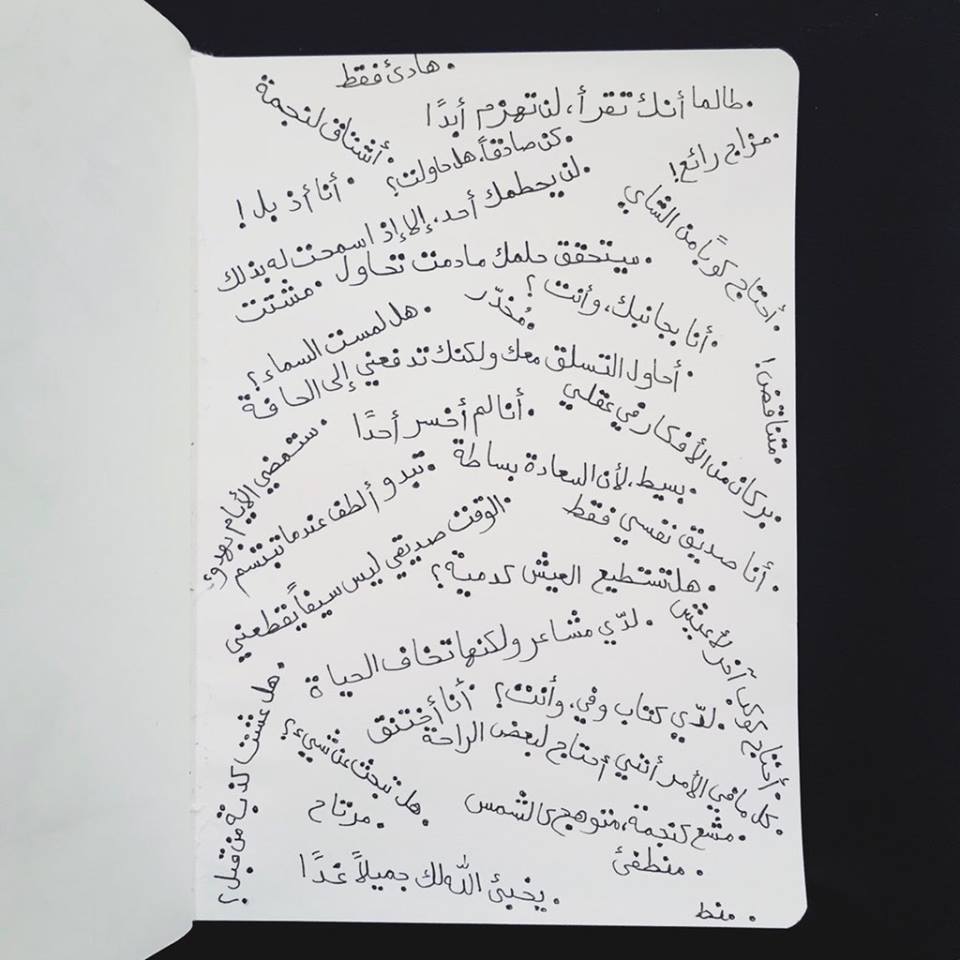 . هادئ فقط
. طالما أنك تقرأ، لن تهزم أبدًا
. أشتاق لنجمة
. كن صادقاً، هل حاولت؟
. مزاج رائع!
. أنا أذبل!
. لن يحطمك أحد، إلا إذا سمحت له بذلك
. أحتاج كوباً من الشاي
. سيتحقق حلمك مادمت تحاول
. مشتت
. أنا بجانبك، وأنت؟
. مُخدّر
. هل لمست السماء؟
. أحاول التسلق معك ولكنك تدفعني إلى الحافة
. متناقض!
. بركان من الأفكار في عقلي
. أنا لم أخسر أحدًا
. ستمضي الأيام بهدوء
. بسيط، لأن السعادة بساطة
. تبدو ألطف عندما تبتسم
. أنا صديق نفسي فقط
. الوقت صديقي ليس سيفاً يقطعني
. هل تستطيع العيش كدمية؟
. لدّي مشاعر ولكنها تخاف الحياة
. أحتاج كوكب آخر لأعيش
. لدّي كتاب وفي، وأنت؟
. أنا أختنق
. هل عشت كذبة من قبل؟
. كل مافي الأمر أنني أحتاج لبعض الراحة
. هل تبحث عن شيء؟
. مشع كنجمة، متوهج كالشمس
. مرتاح
. منطفئ
. يخبئ الله لك جميلاً غدًا
. منط